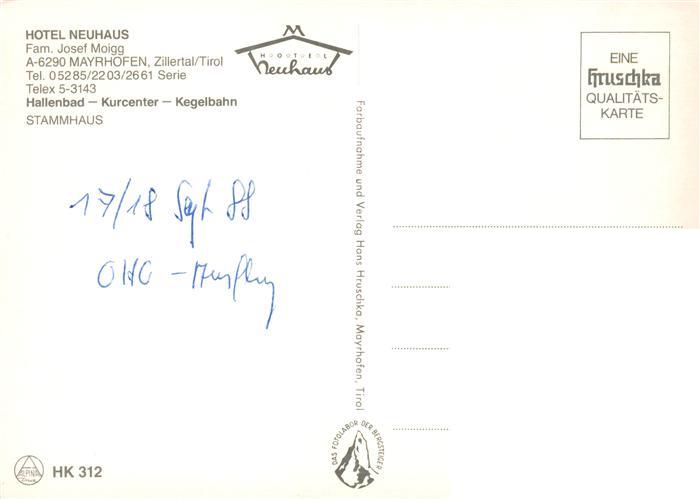 HOTEL NEUHAUS
Fam. Josef Moigg
A-6290 MAYRHOFEN, Zillertal/Tirol
Tel. 05285/2203/2661 Serie
Telex 5-3143
Hallenbad — Kurcenter — Kegelbahn
STAMMHAUS
M
HOOTEEL
Neuhaus
EINE
Hruschka
QUALITÄTS-
KARTE
17/18 Sept 88
OHG - Ausflug
Farbaufnahme und Verlag Hans Hruschka, Mayrhofen, Tirol
DAS FOTOLABOR DER BERGSTEIGER
ALPINA
Druck
HK 312